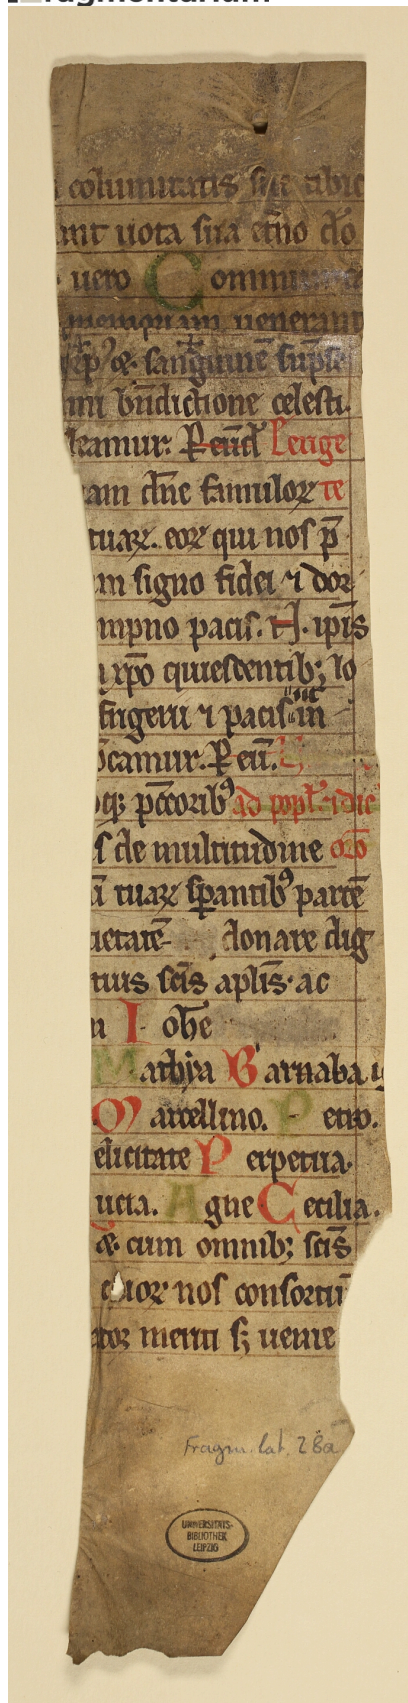 columitatis sue tibiq
ant uota sua et̄no d̄o
uero Communica
memoriam uenerant
xp̄ꝰ & sanguinē sūpse
mni bn̄dictione celesti.
leamur. P eūd̄ Leuige
iam dn̄e famuloꝝ te
tuaꝝ. eoꝝ qui nos p̄
m signo fidei ⁊ dor
mpno pacis. N. ip̄is
xp̄o quiescentib; lo
frigerii ⁊ pacis in
camur. P eū.
oq; pccōrib⁹ ad pop̄l. ⁊ dic
s de multitudine
ū tuaꝝ sꝑantib⁹ partē
ietatē donare dig
tuis sc̄is ap̄lis. ac
I ohe
Mathya Barnaba. ig
Marcellino. Petro.
elicitate Perpetua.
ucia. Agne Cecilia.
& cum omnib; sc̄is
quoꝝ nos consortiū
ator meriti s; uenie
Fragm. lat. 28a
UNIVERSITÄTS-
BIBLIOTHEK
LEIPZIG